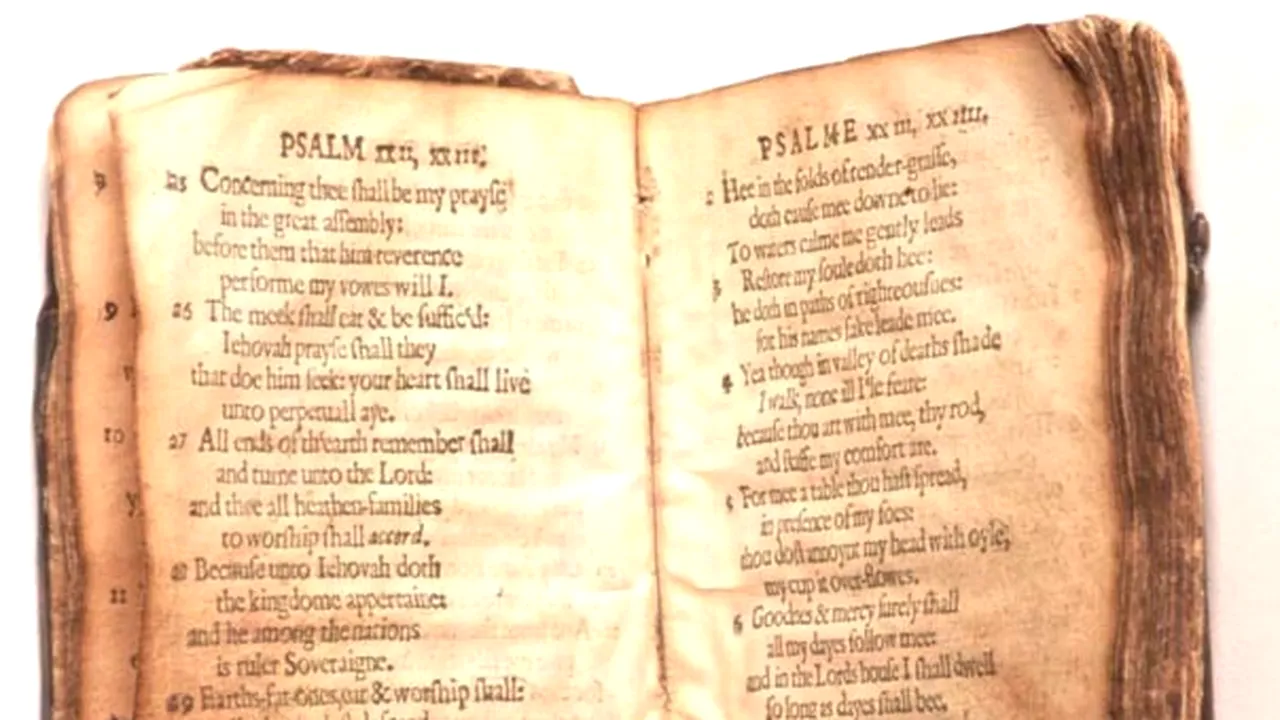 PSALM xxii, xxiii;
9
25 Concerning thee ſhall be my prayſe
in the great aſſembly:
before them that him reverence
performe my vowes will I.
9
26 The meek ſhall eat & be ſuffic'd:
Iehovah prayſe ſhall they
that doe him ſeek: your heart ſhall live
unto perpetuall aye.
10
27 All ends of th'earth remember ſhall
and turne unto the Lord:
and thee all heathen-families
to worſhip ſhall accord.
28 Becauſe unto Iehovah doth
the kingdome appertaine:
11
and he among the nations
is ruler Soveraigne.
29 Earths-fat-ones, eat & worſhip ſhall:
PSALME xxiii, xxiiii.
2 Hee in the folds of tender-graſſe,
doth cauſe mee downe to lie:
To waters calme me gently leads
3 Reſtore my ſoule doth hee:
he doth in paths of righteouſnes:
for his names ſake leade mee.
4 Yea though in valley of deaths ſhade
I walk, none ill I'le feare:
becauſe thou art with mee, thy rod,
and ſtaffe my comfort are.
5 For mee a table thou haſt ſpread,
in preſence of my foes:
thou doſt annoynt my head with oyle,
my cup it over-flowes.
6 Goodnes & mercy ſurely ſhall
all my dayes follow mee:
and in the Lords houſe I ſhall dwell
ſo long as dayes ſhall bee.